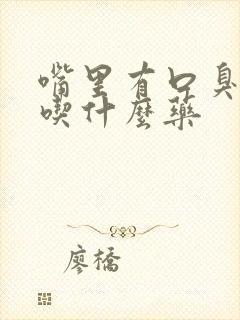 嘴里有口臭
喫什麼藥
廖橋